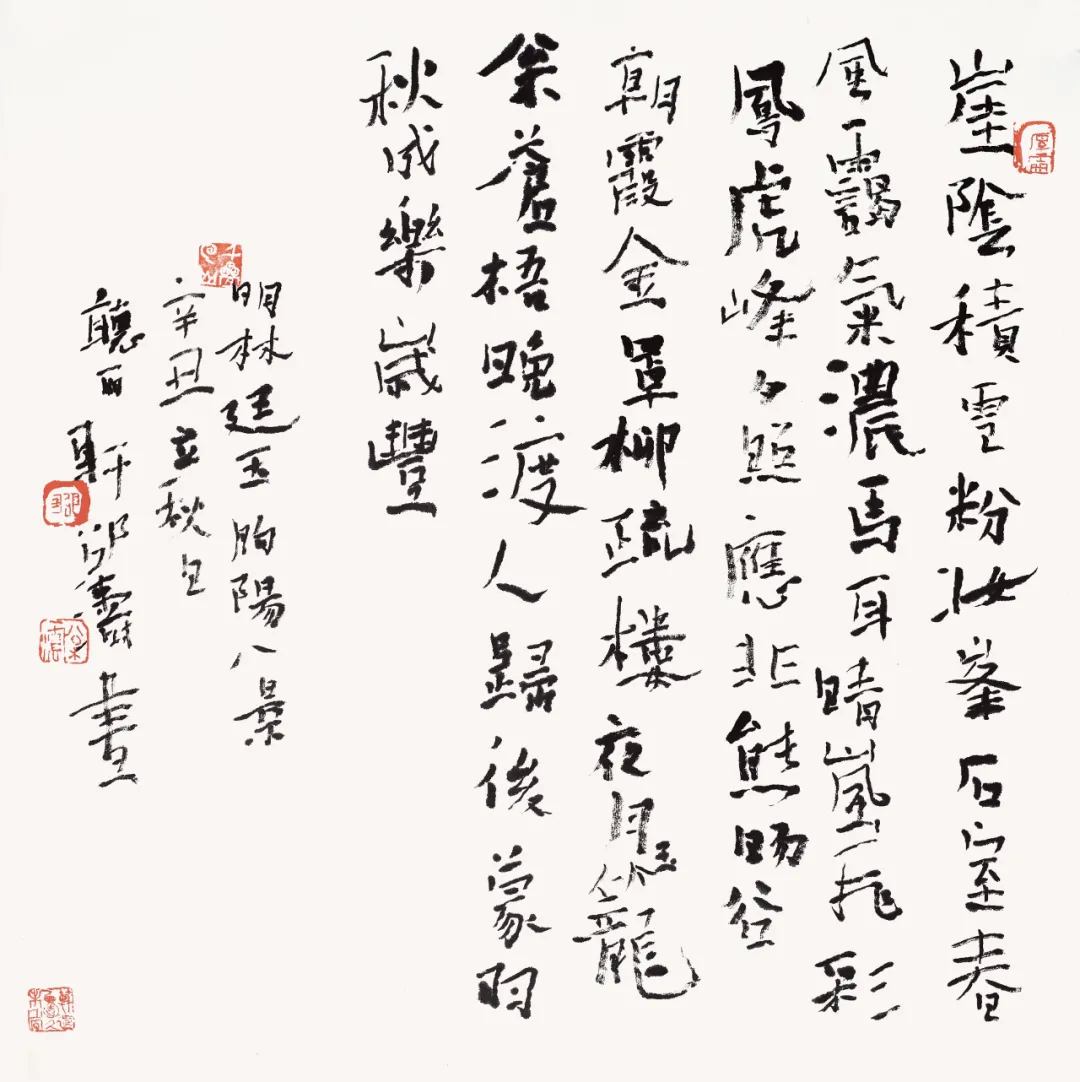 崖陰積雪粉妝峯石室春
風靄氣濃馬耳晴嵐拖彩
鳳虎峰夕照應非熊暘谷
朝霞金罩柳疏樓夜月玉籠
枀蒼梧晚渡人歸後蒙羽
秋成樂歲豐
明林廷玉朐陽八景
辛丑立秋日
聽雨軒邱書